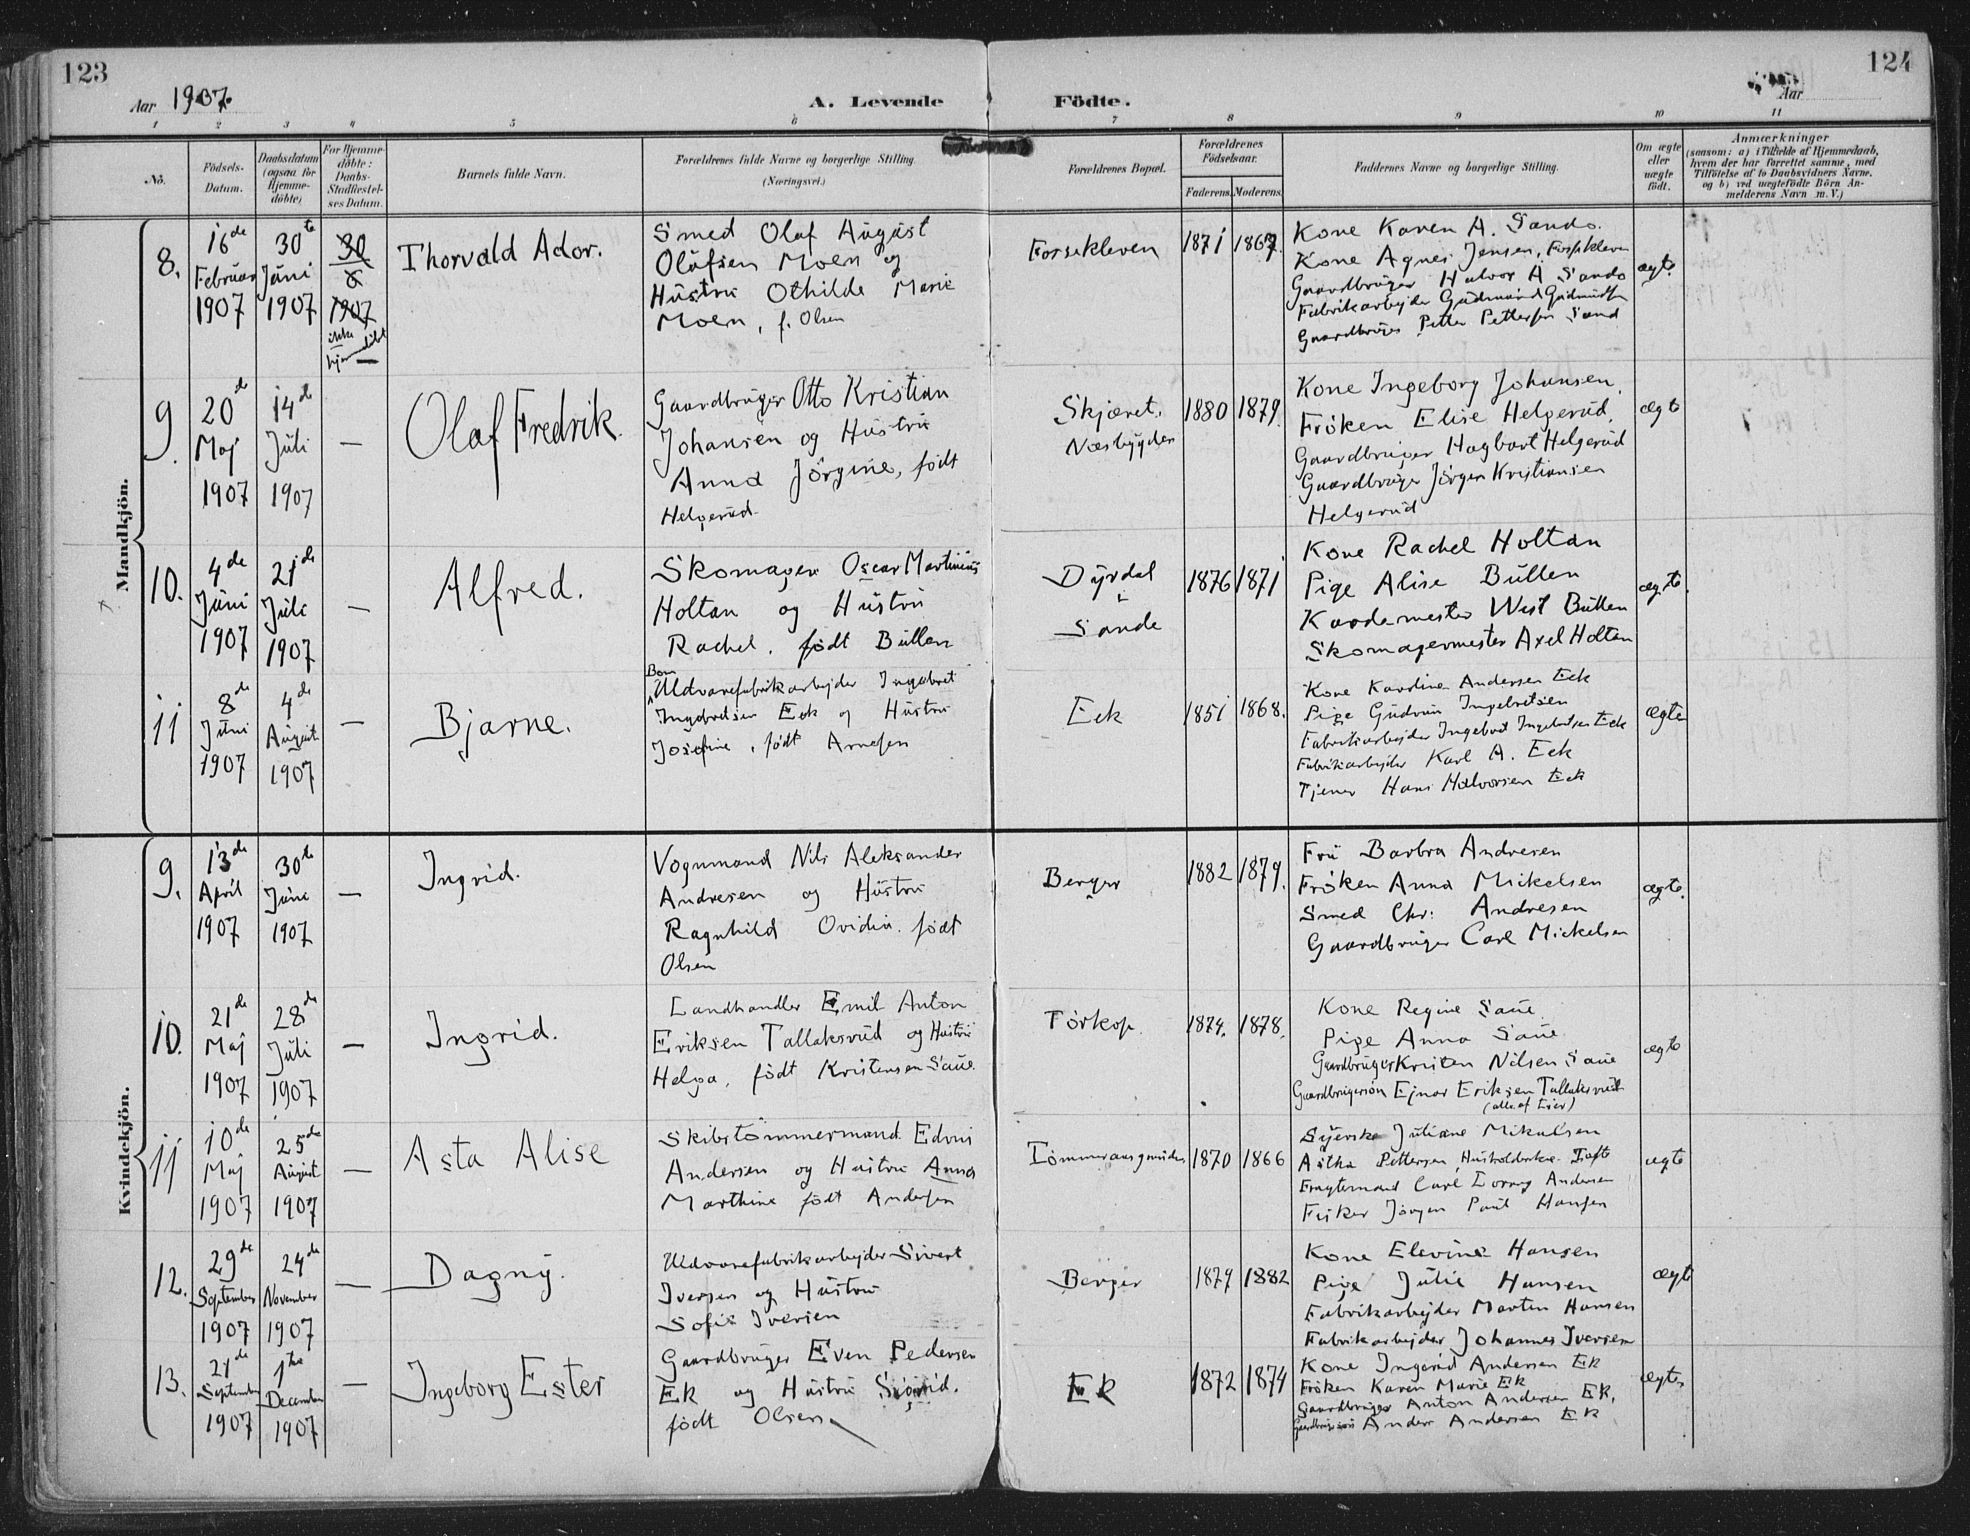 123
124
Aar 1907.
A. Levende Födte.
Aar
1 2 3 4 5 6 7 8 9 10 11
No.
Födsels-Datum.
Daabsdatum (ogsaa for Hjemme-döbte)
For Hjemme-döbte: Daabs-Stadfæstel-ses Datum.
Barnets fulde Navn.
Forældrenes fulde Navne og borgerlige Stilling. (Næringsvei.)
Forældrenes Bopæl.
Forældrenes Födselsaar.
Faderens. Moderens.
Faddernes Navne og borgerlige Stilling.
Om ægte eller uægte födt.
Anmærkninger
(saasom: a) i Tilfælde af Hjemmedaab, hvem der har forrettet samme, med Tilföielse af to Daabsvidners Navne. og b) ved uægtefödte Börn An-melderens Navn m. V.)
Mandkjön.
8.
16de Februar 1907
30te Juni 1907
30 6 1907
ikke hjemmedöbt —
Thorvald Ador.
Smed Olaf August
Olafsen Moen og
Hustru Othilde Marie
Moen, f. Olsen
Forsekleven
1871 1867.
Kone Karen A. Sando.
Kone Agnes Jensen, Forsekleven
Gaardbruger Halvor A Sando
Fabrikarbejder Gudmund Gudmundsen
Gaardbruger Petter Pettersen Sand
ægte.
9.
20de Maj 1907
14de Juli 1907
—
Olaf Fredrik.
Gaardbruger Otto Kristian
Johansen og Hustru
Anna Jörgine, födt
Helgerud
Skjæret,
Næsbygden
1880 1879.
Kone Ingeborg Johansen,
Fröken Elise Helgerud,
Gaardbruger Hagbart Helgerud
Gaardbruger Jörgen Kristiansen
Helgerud
ægte
10.
4de Juni 1907
21de Juli 1907
—
Alfred.
Skomager Oscar Martinius
Holtan og Hustru
Rachel, födt Bullen
Dyrdal
i
Sande
1876 1871
Kone Rachel Holtan
Pige Alise Bullen
Kardemester West Bullen
Skomagermester Axel Holtan
ægte.
11
8de Juni 1907
4de August 1907
—
Bjarne.
Uldvarefabrikarbejder Ingebret
Ingebretsen Eek og Hustru
Josefine, födt Arnesen
Eek
1851 1868.
Kone Karoline Andersen Eek
Pige Gudrun Ingebretsen
Fabrikarbejder Ingebret Ingebretsen Eek
Fabrikarbejder Karl A. Eek
Tjener Hans Halvorsen Eek
ægte
Kvindekjön.
9.
13de April 1907
30te Juni 1907
—
Ingrid.
Vognmand Nils Aleksander
Andresen og Hustru
Ragnhild Ovidia. födt
Olsen
Berger
1882 1879.
Fru Barbra Andresen
Fröken Anna Mickelsen
Smed Chr: Andresen
Gaardbruger Carl Mickelsen
ægte.
10.
21de Maj 1907
28de Juli 1907
—
Ingrid.
Landhandler Emil Anton
Eriksen Tallaksrud og Hustru
Helga, födt Kristensen Saue
Törkop.
1874. 1878.
Kone Regine Saue.
Pige Anna Saue
Gaardbruger Kristen Nilsen Saue
Gaardbrugersön Ejnar Eriksen Tallaksrud
ægte
11
10de Maj 1907
25de August 1907
—
Asta Alise
Skibstömmermand Edvin
Andersen og Hustru Anna
Marthine födt Andersen
1870 1866
Syerske Juliane Mikalsen
Astha Pettersen, Husholderske Tofte
Fragtemand Carl Andersen
Fisker Jörgen Paul Hansen
ægte
12.
29de September 1907
24de November 1907
—
Dagny.
Uldvarefabrikarbejder Sivert
Iversen og Hustru
Sofie Iversen
Berger
1879 1882
Kone Elevine Hansen
Pige Julie Hansen
Fabrikarbejder Martin Hansen
Fabrikarbejder Johannes Iversen
ægte
13.
21de September 1907
1ste December 1907
—
Ingeborg Ester
Gaardbruger Even Pedersen
Ek og Hustru Sigrid.
födt Olsen
Ek
1872 1874
Kone Ingerid Andersen Ek
Fröken Karen Marie Ek
Gaardbruger Anton Andersen Ek,
Gaardbrugersön Anders Andersen Ek
ægte